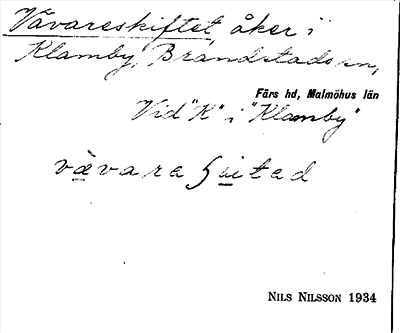 Vävareskiftet, åker i
Klamby, Brandstads sn,
Färs hd, Malmöhus län
Vid "K" i "Klamby"
vävare
NILS NILSSON 1934